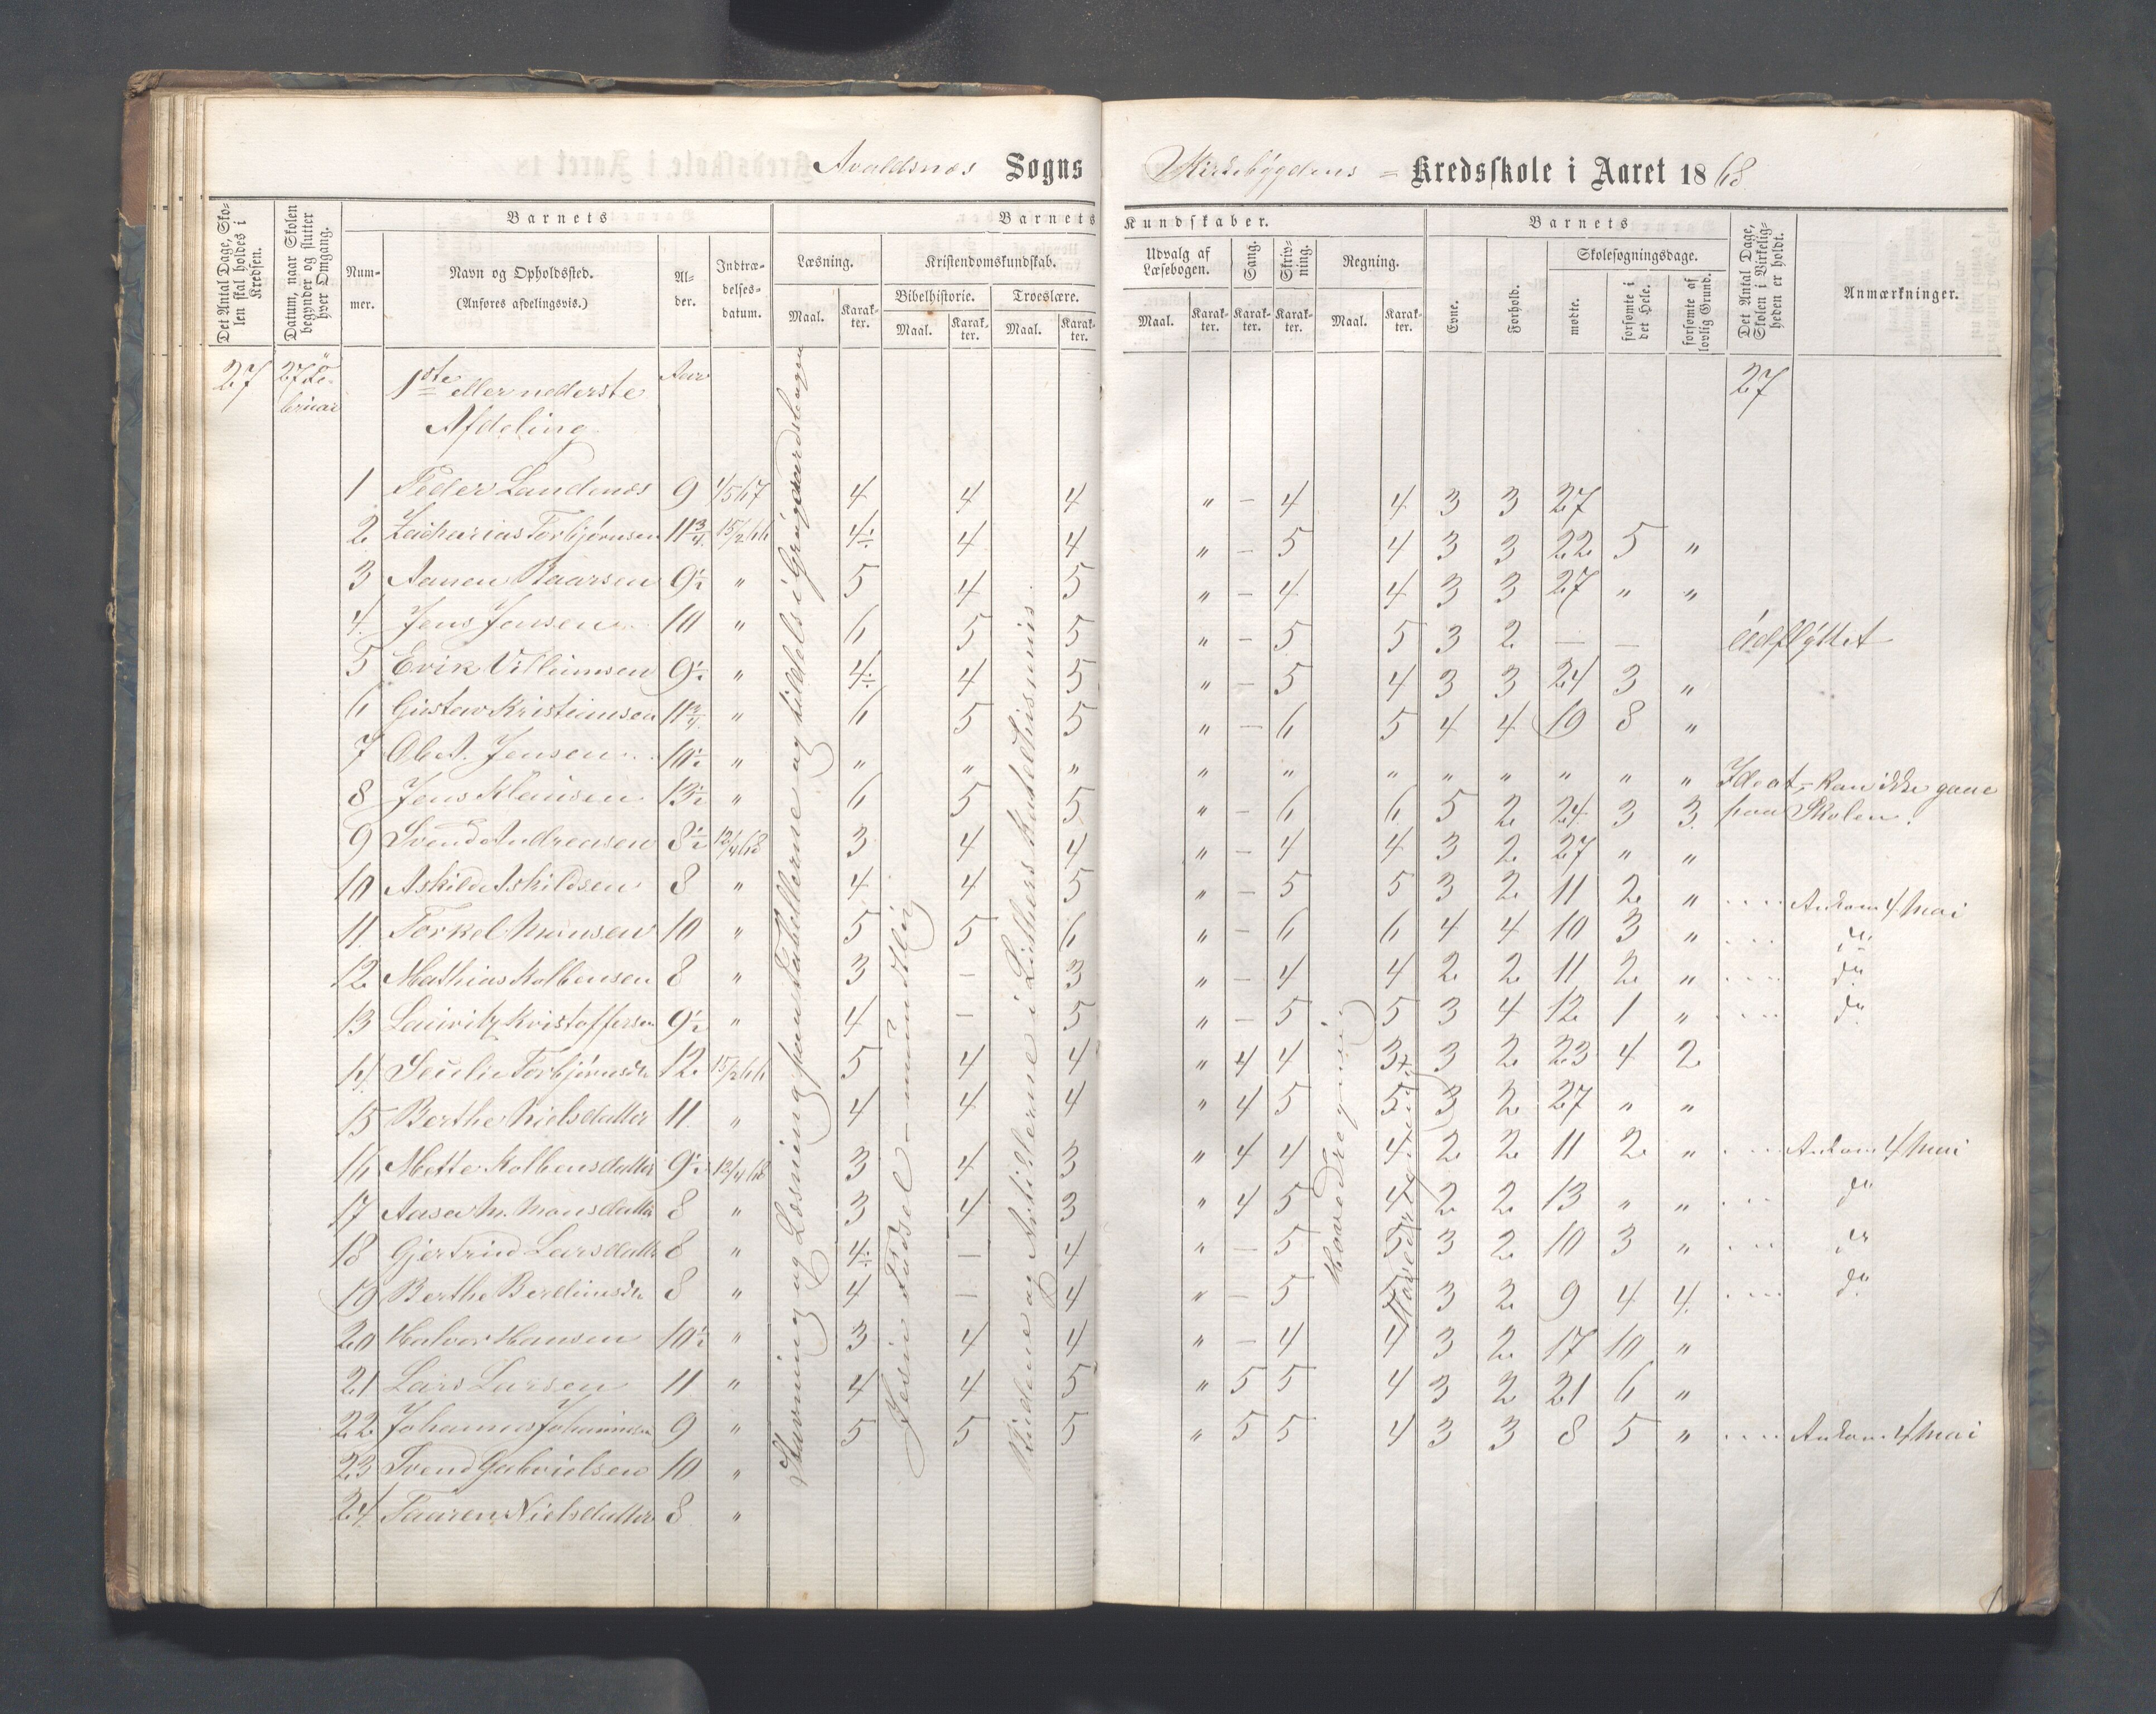 Avaldsnes Sogns Kirkebygdens - Kredsskole i Aaret 1868
Det Antal Dage, Skolen skal holdes i Kredsen.
Datum, naar Skolen begynder og slutter hver Omgang.
Barnets
Nummer.
Navn og Opholdssted.
(Anføres afdelingsvis.)
Alder.
Indtrædelsesdatum.
Barnets Kundskaber.
Læsning.
Maal. Karakter.
Kristendomskundskab.
Bibelhistorie. Troeslære.
Maal. Karakter. Maal. Karakter.
Udvalg af Læsebogen.
Maal. Karakter.
Sang. Karakter.
Skrivning. Karakter.
Regning.
Maal. Karakter.
Barnets
Evne. Forhold.
Skolesøgningsdage.
mødte. forsømte i det Hele. forsømte af lovlig Grund.
Det Antal Dage, Skolen i Virkeligheden er holdt.
Anmærkninger.
27 27 Februar 1ste eller nederste Aar 27
Afdeling
1 Peder Landnæs 9 1/5 67 4 4 4 " - 4 4 3 3 27
2 Zacharias Torbjørnsen 11 3/4 15/2 66 4÷ 4 4 " - 5 4 3 3 22 5 "
3 Aanen Baarsen 9½ " 5 4 5 " - 4 4 3 3 27 " "
4 Jens Jensen 10 " 6 5 5 " - 5 5 3 2 - - Udflyttet
5 Erik Villumsen 9½ " 4÷ 4 5 " - 5 4 3 3 24 3 "
6 Gustav Kristiansen 11 3/4 " 6 5 5 " - 6 5 4 4 19 8 "
7 Ole A. Jensen 10½ " " " " " " " " " " " " Ideot, - kan ikke gaae
8 Jens Klausen 13½ " 6 5 5 " - 6 6 5 2 24 3 3 paa Skolen.
9 Svend Andreasen 8½ 12/4 68 3 4 4 " - 4 4 3 2 27 " "
10 Askild Askildsen 8 " 4 4 5 " - 5 5 3 2 11 2 " .... Ankom 4 Mai
11 Torkel Monsen 10 " 5 5 6 " - 6 6 4 4 10 3 " ... do
12 Mathias Kolbensen 8 " 3 - 3 " - 4 4 2 2 11 2 " .... do
13 Lauritz Kristoffersen 9½ " 4 - 5 " - 5 5 3 4 12 1 " .... do
14 Secilie Torbjørnsdr 12 15/2 66 5 4 4 " 4 4 3+ 3 2 23 4 2
15 Berthe Nielsdatter 11 " 4 4 4 " 4 5 5 3 2 27 " "
16 Mette Kolbensdatter 9½ 12/4 68 3 4 3 " 4 4 4 2 2 11 2 " .... Ankom 4 Mai
17 Aasa M. Monsdatter 8 " 3 4 3 " 4 5 4 2 2 13 " " ... do
18 Gjertrud Larsdatter 8 " 4÷ - 4 " - 5 5 3 2 10 3 " ... do
19 Berthe 8 " 4 - 4 " - 5 5 3 2 9 4 4 .... do
20 Halvor Hansen 10½ " 3 4 4 " - 4 4 3 2 17 10 "
21 Lars Larsen 11 " 4 4 5 " 5 5 4 3 2 21 6 "
22 Johannes Johannesen 9 " 5 5 5 " 5 5 4 3 3 8 5 " .... Ankom 4 Mai
23 Svend Gabrielsen 10 "
24 Taaren Nielsdatter 8 "
Stavning og Læsning paa Tabellerne og tildels i
Jesu Fødsel - mundtlig
Budene og Artiklerne i Luthers Katechismus.
Hovedregning
Hovedregning